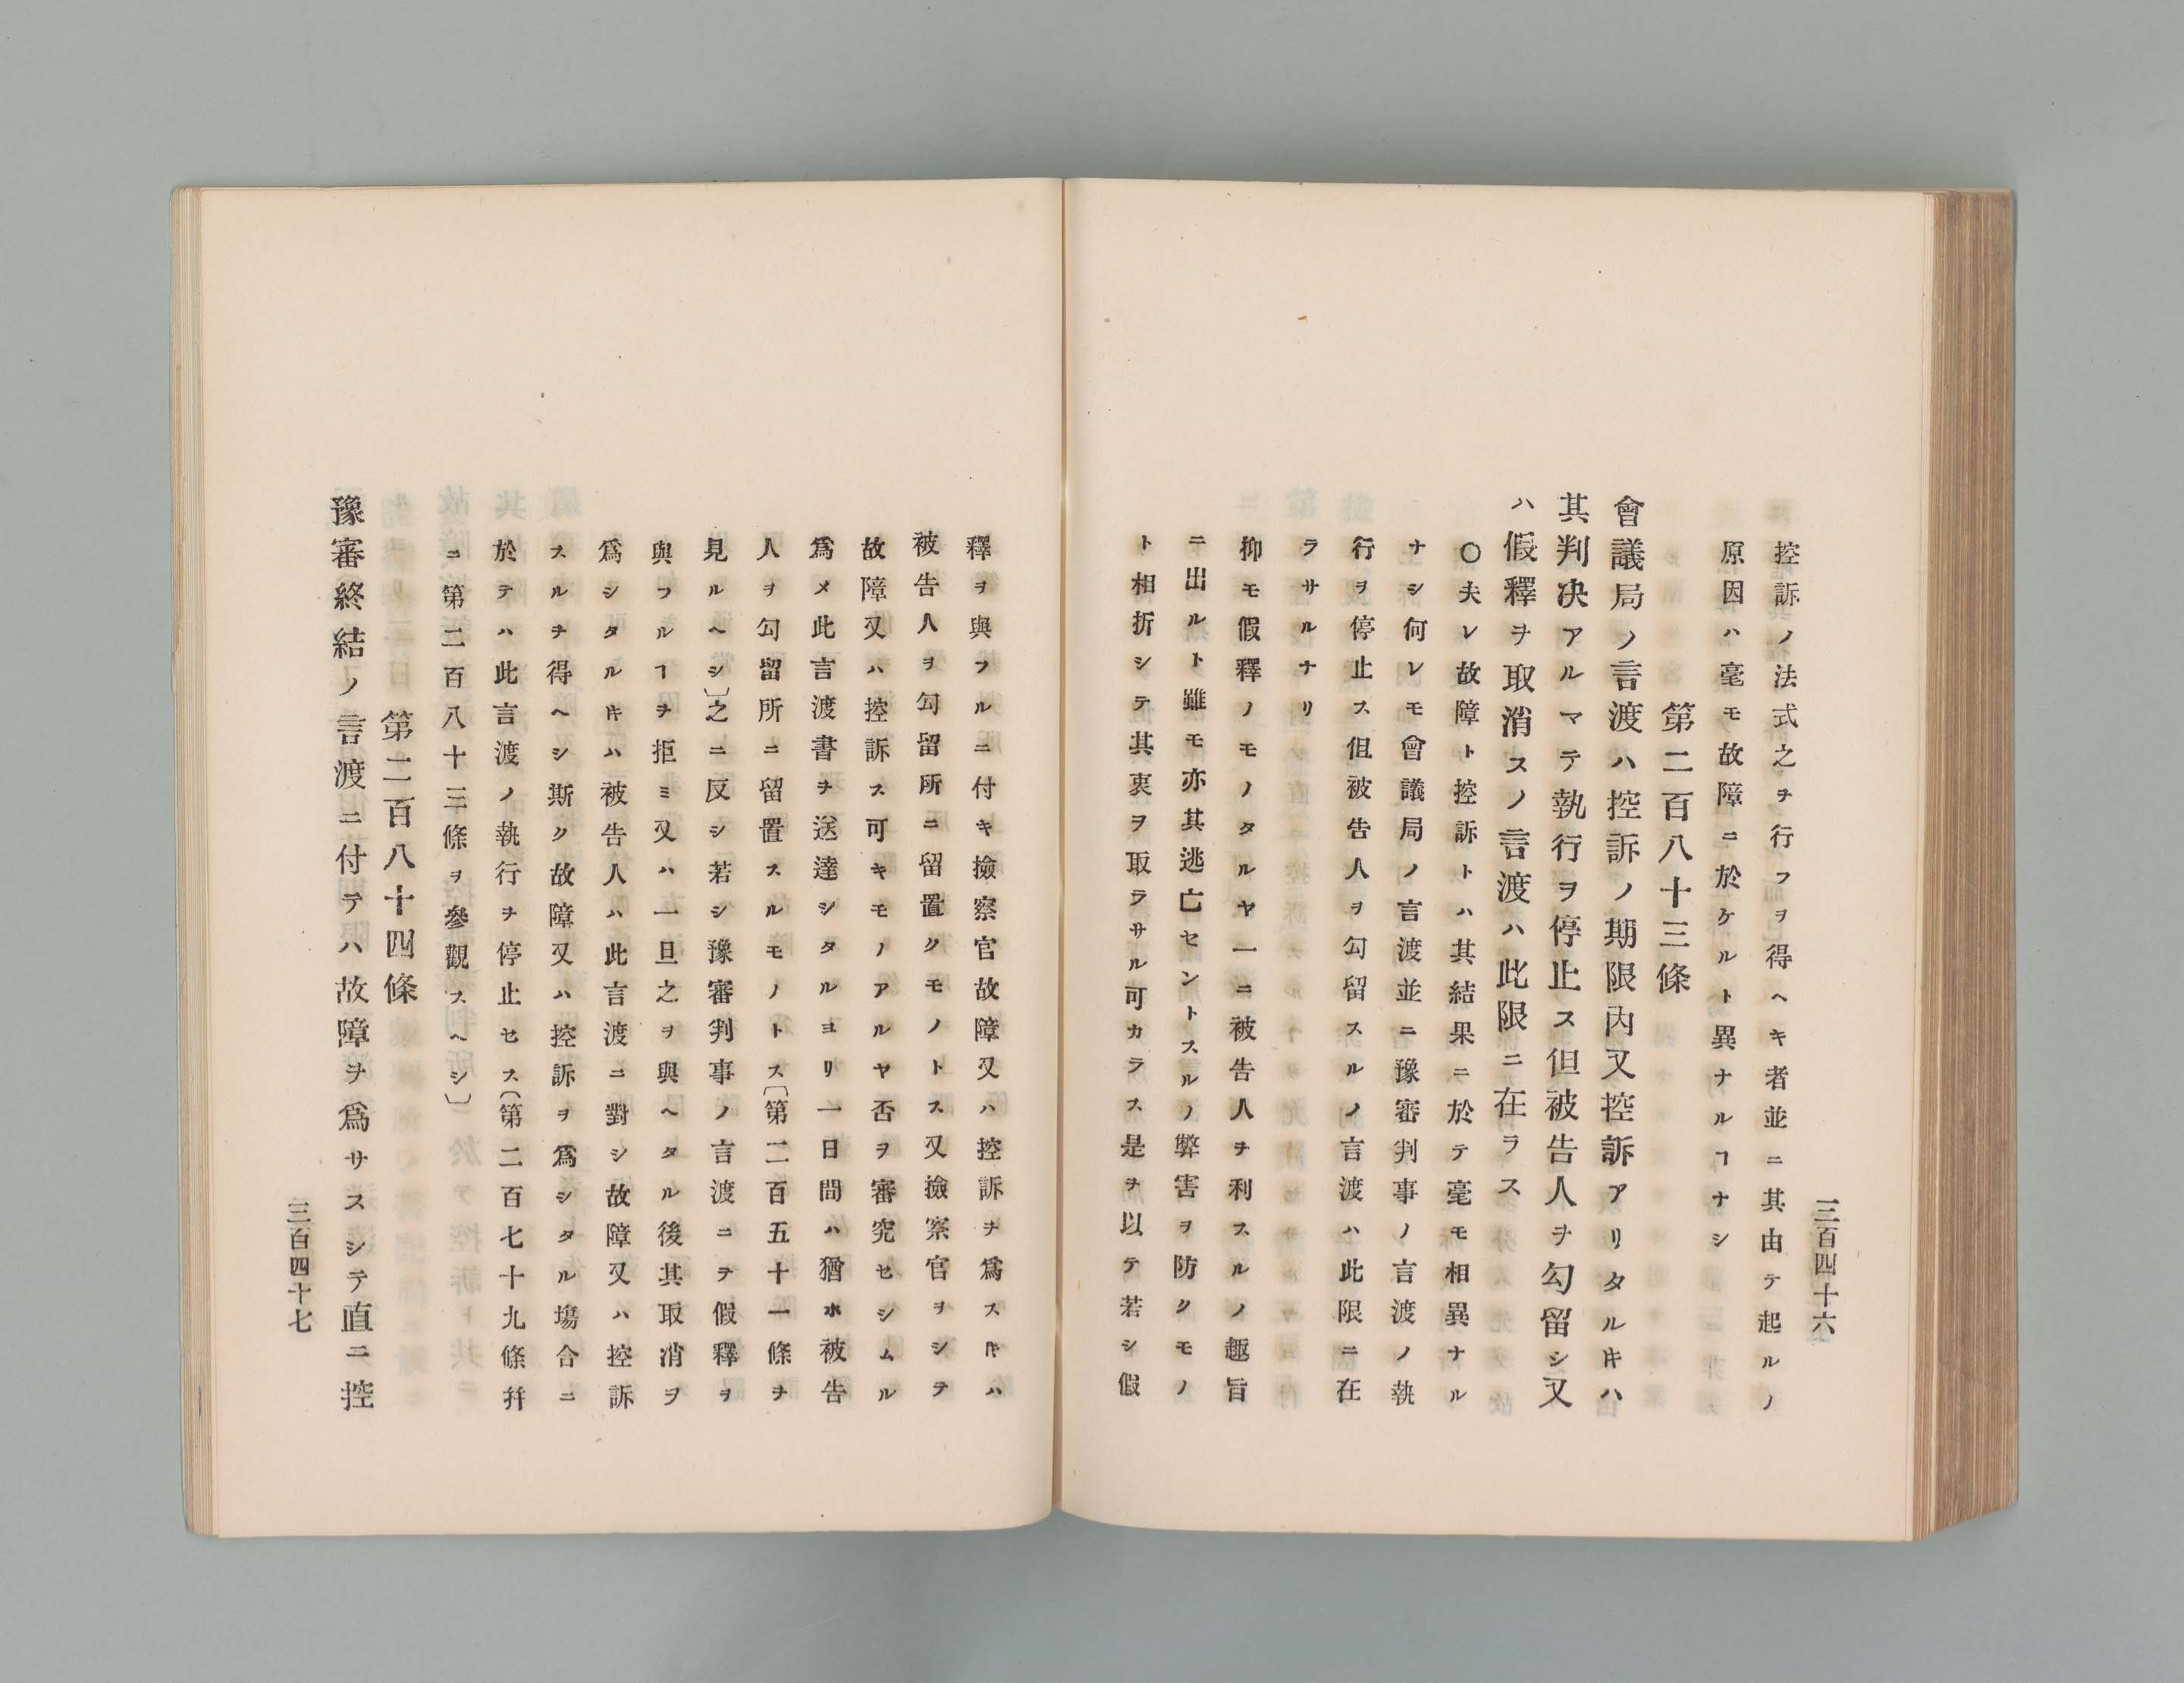 三百四十六
控訴ノ法式之ヲ行フヲ得ヘキ者並ニ其由テ起ルノ
原因ハ毫モ故障ニ於ケルト異ナルヿナシ
第二百八十三條
會議局ノ言渡ハ控訴ノ期限内又控訴アリタルキハ
其判决アルマテ執行ヲ停止ス但被告人ヲ勾留シ又
ハ假釋ヲ取消スノ言渡ハ此限ニ在ラス
〇夫レ故障ト控訴トハ其結果ニ於テ毫モ相異ナル
ナシ何レモ會議局ノ言渡並ニ豫審判事ノ言渡ノ執
行ヲ停止ス但被告人ヲ勾留スルノ言渡ハ此限ニ在
ラサルナリ
抑モ假釋ノモノタルヤ一ニ被告人ヲ利スルノ趣旨
ニ出ルト雖モ亦其逃亡セントスルノ弊害ヲ防クモノ
ト相折シテ其衷ヲ取ラサル可カラス是ヲ以テ若シ假
釋ヲ與フルニ付キ撿察官故障又ハ控訴ヲ爲スキハ
被告人ヲ勾留所ニ留置クモノトス又撿察官ヲシテ
故障又ハ控訴ス可キモノアルヤ否ヲ審究セシムル
爲メ此言渡書ヲ送達シタルヨリ一日間ハ猶ホ被告
人ヲ勾留所ニ留置スルモノトス〔第二百五十一條ヲ
見ルヘシ〕之ニ反シ若シ豫審判事ノ言渡ニテ假釋ヲ
與フルヿヲ拒ミ又ハ一旦之ヲ與ヘタル後其取消ヲ
爲シタルキハ被告人ハ此言渡ニ對シ故障又ハ控訴
スルヲ得ヘシ斯ク故障又ハ控訴ヲ爲シタル塲合ニ
於テハ此言渡ノ執行ヲ停止セス〔第二百七十九條幷
ニ第二百八十三條ヲ參觀スヘシ〕
第二百八十四條
豫審終結ノ言渡ニ付テハ故障ヲ爲サスシテ直ニ控
三百四十七